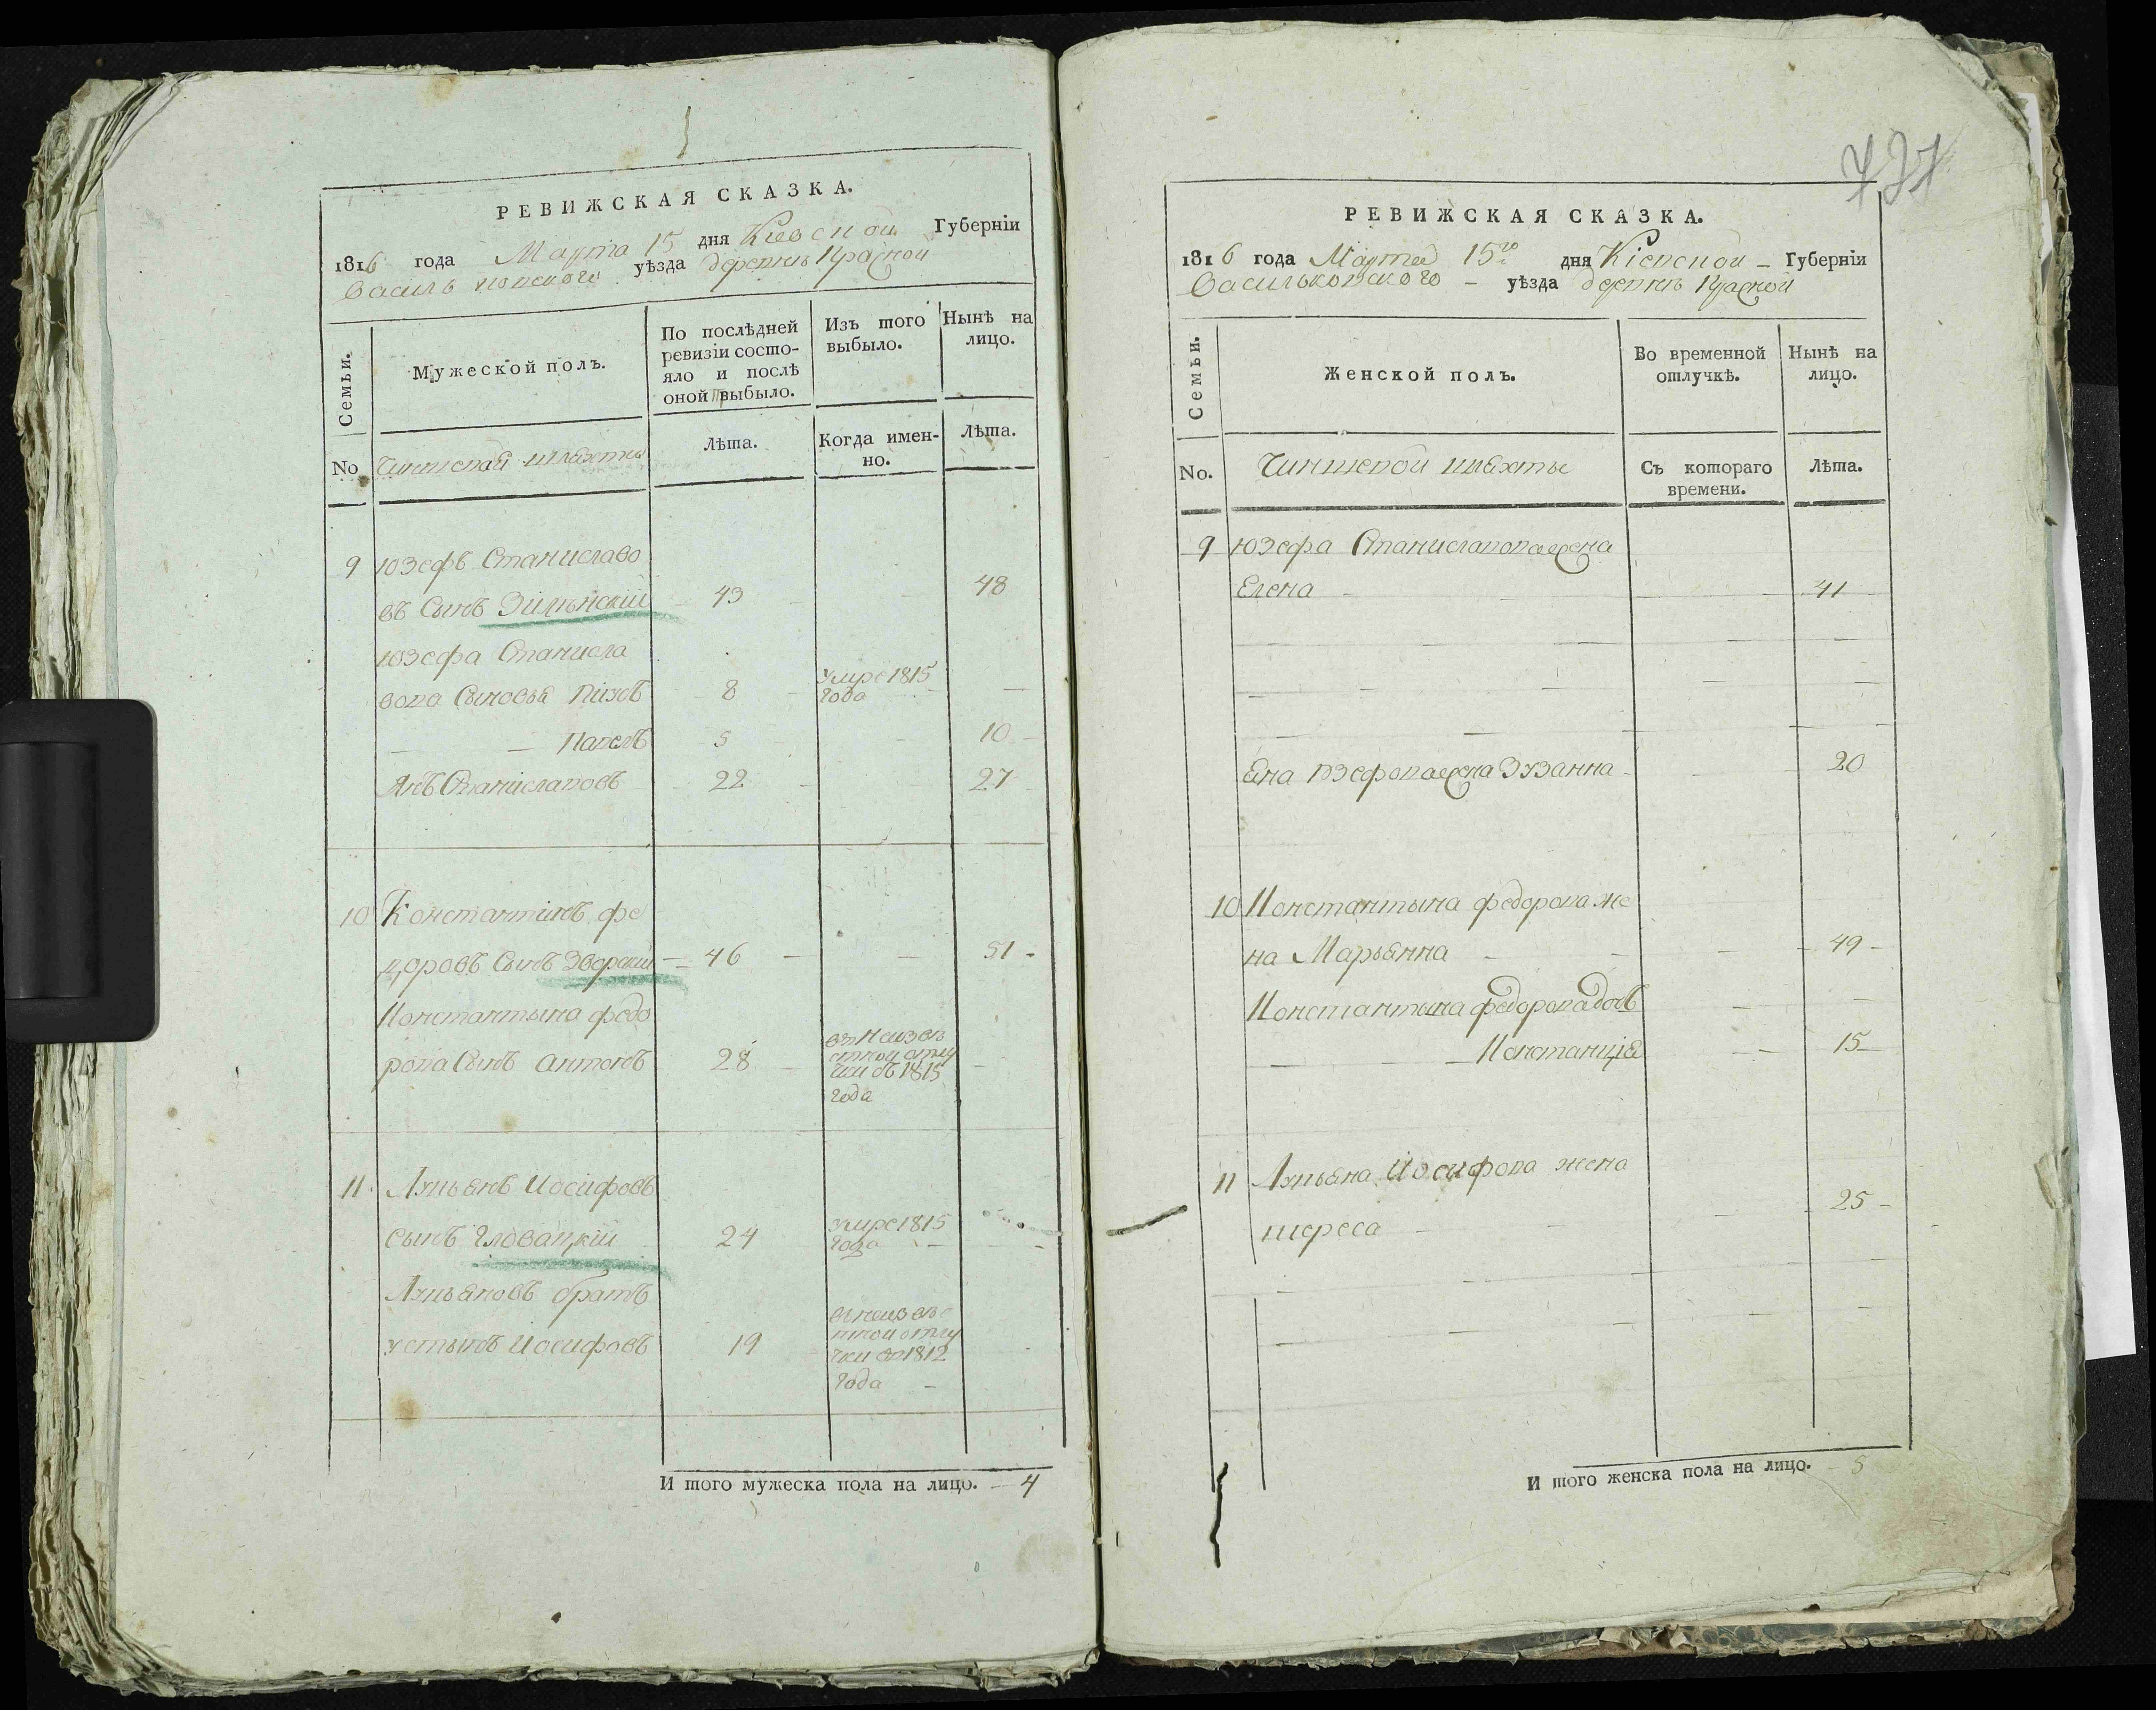 РЕВИЖСКАЯ СКАЗКА.
1816 года Марта 15 дня Киевской Губерніи
Васильковского уѣзда деревнѣ Красной
Семьи.
Мужеской полъ.
По послѣдней ревизіи состо-
яло и послѣ
оной выбыло.
Изъ того
выбыло.
Нынѣ на
лицо.
No
Чиншевай шляхты
Лѣта.
Когда имен-
но.
Лѣта.
9 Юзефъ Станиславо
въ Сынъ Зілінскій 43 48
Юзефа Станисла
вова Сыновья 8 умре 1815
года
Павелъ 5 10
Янъ Станиславовъ 22 27
10 Константінъ фе
доровъ Сынъ Зворскій 46 51
Константына федо
рова Сынъ Антонъ 28 въ Неизвѣ
стной отлу
чки съ 1815
года
11 Лукьянъ Иосифовъ
сынъ Гловацкій 24 умре 1815
года
Лукьяновъ братъ
устынъ Иосифовъ 19 въ неизвѣ
стной отлу
чки въ 1812
года
И того мужеска пола на лицо. 4
737
РЕВИЖСКАЯ СКАЗКА.
1816 года Марта 15го дня Кіевской Губерніи
Васильковского уѣзда деревнѣ Красной
Семьи.
Женской полъ.
Во временной
отлучкѣ.
Нынѣ на
лицо.
No.
Чиншевой шляхты
Съ котораго
времени.
Лѣта.
9 Юзефа Станиславова жена
Елена 41
Яна Юзефова жена Зузанна 20
10 Константына федорова же
на Марьянна 49
Константына федорова дочь
Констанція 15
11 Лукьяна Иосифова жена
тереса 25
И того женска пола на лицо. 5